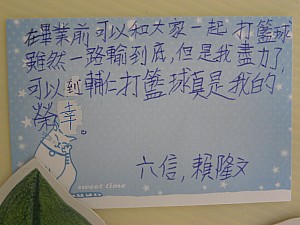 在畢業前可以和大家一起打籃球
雖然一路輸到底,但是我盡力了,
可以到輔仁打籃球真是我的
榮幸。
六信,賴隆文
sweet time